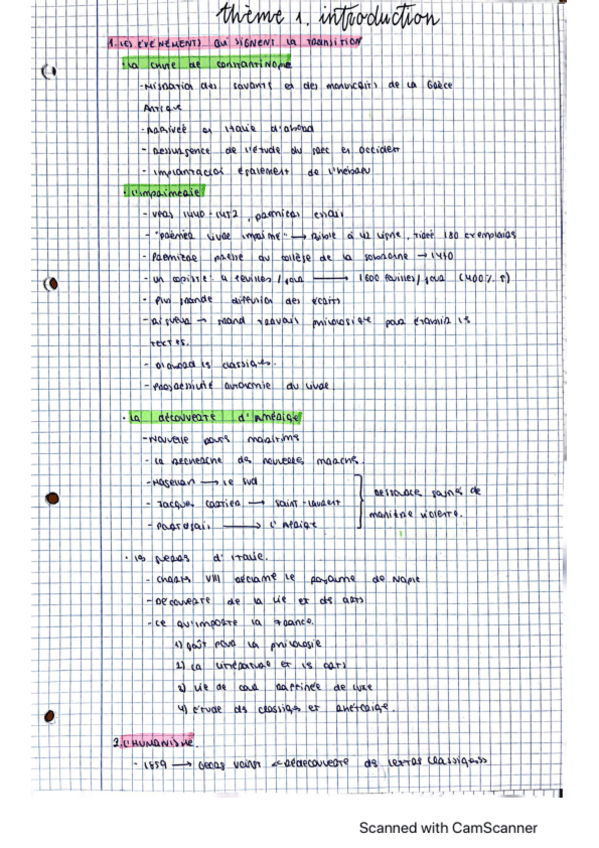 thème 1. introduction
1. les évènements qui signent la transition
· la chute de Constantinople
- Migration des savants et des manuscrits de la Grèce
Antique
- Arrivée en Italie d'abord
- Ressurgence de l'étude du grec en occident
- Implantation également de l'hébreu
· l'imprimerie
- vers 1440-1452, premiers essais
- "premier livre imprimé" → Bible à 42 ligne, tiré 180 exemplaires
- Première presse au collège de la Sorbonne → 1470
- un copiste: 4 feuilles/jour → 1600 feuilles/jour (400% ↑)
- Plus grande diffusion des écrits
- → grand travail philologique pour les
textes.
- D'abord ls classiques.
- Progressivité autonomie du livre
· la découverte d'Amérique
- Nouvelle maritims
- La recherche de nouvelles
- Magellan → le sud
- Jacques Cartier → Saint-Laurent
- → l'
de
manière violente.
· ls d'Italie.
- Charles VIII réclame le royaume de Naple
- Découverte de la vie et ds arts
- ce qu'importe la France.
1) goût pour la philologie
2) la littérature et ls arts
3) vie de cour raffinée de luxe
4) étude ds classiqs et
2. l'HUMANISME.
- 1859 → Georg Voigt redécouverte ds lettres classiques